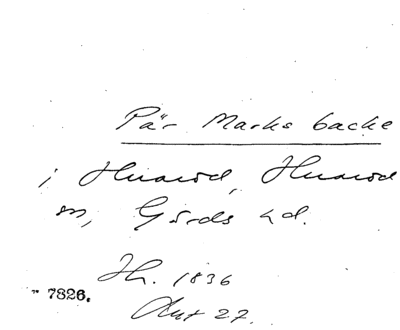 Pär Marks backe
i Huaröd, Huaröd
sn, Gärds hd.
1836
7826.
Akt 27.